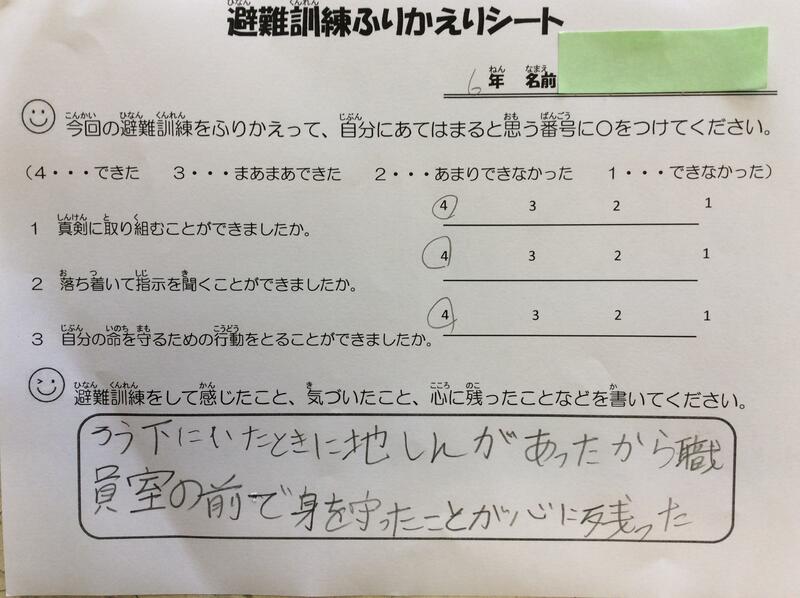 避難訓練ふりかえりシート
6年 名前
今回の避難訓練をふりかえって、自分にあてはまると思う番号に○をつけてください。
(4・・・できた 3・・・まあまあできた 2・・・あまりできなかった 1・・・できなかった)
1 真剣に取り組むことができましたか。 4 3 2 1
2 落ち着いて指示を聞くことができましたか。 4 3 2 1
3 自分の命を守るための行動をとることができましたか。 4 3 2 1
避難訓練をして感じたこと、気づいたこと、心に残ったことなどを書いてください。
ろう下にいたときに地しんがあったから職
員室の前で身を守ったことが心に残った